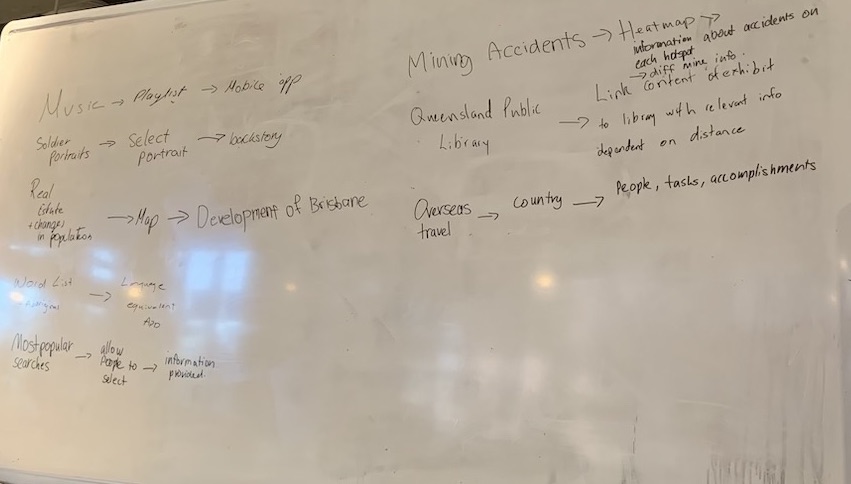 Music → Playlist → Mobile app
Soldier portraits → Select portrait → backstory
Real Estate + changes in population → Map → Development of Brisbane
Word List → Language equivalent
Most popular searches → allow people to select → information provided.
Mining Accidents → Heatmap →> information about accidents on each hotspot
→ diff mine info.
Queensland Public Library → Link content of exhibit to library with relevant info dependent on distance
Overseas travel → Country → People, tasks, accomplishments